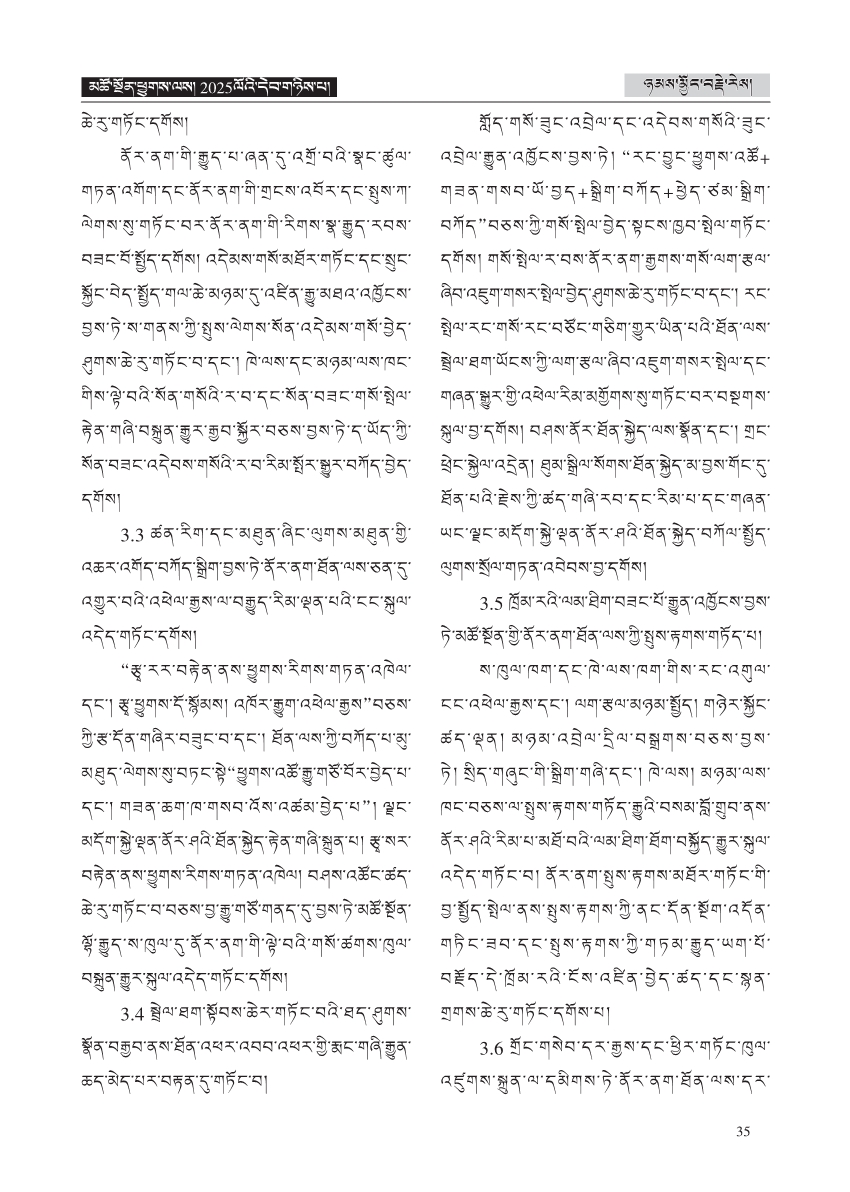 མཚོ་སྔོན་ཕྱུགས་ལས། 2025ལོའི་དེབ་གཉིས་པ།
ཉམས་མྱོང་བརྗེ་རེས།
ཆེ་རུ་གཏོང་དགོས།
ནོར་ནག་གི་རྒྱུད་པ་ཞན་དུ་འགྲོ་བའི་སྣང་ཚུལ་
གཏན་འགོག་དང་ནོར་ནག་གི་གྲངས་འབོར་དང་སྤུས་ཀ་
ལེགས་སུ་གཏོང་བར་ནོར་ནག་གི་རིགས་སྣ་རྒྱུད་རབས་
བཟང་བོ་སྤྱོད་དགོས། འདེམས་གསོ་མཐོར་གཏོང་དང་སྲུང་
སྐྱོང་བེད་སྤྱོད་གལ་ཆེ་མཉམ་དུ་འཛིན་རྒྱུ་མཐའ་འཁྱོངས་
བྱས་ཏེ་ས་གནས་ཀྱི་སྤུས་ལེགས་སོན་འདེམས་གསོ་བྱེད་
ཤུགས་ཆེ་རུ་གཏོང་བ་དང་། ཁེ་ལས་དང་མཉམ་ལས་ཁང་
གིས་ལྟེ་བའི་སོན་གསོའི་ར་བ་དང་སོན་བཟང་གསོ་སྤེལ་
རྟེན་གཞི་བསྐྲུན་རྒྱུར་རྒྱབ་སྐྱོར་བཅས་བྱས་ཏེ་ད་ཡོད་ཀྱི་
སོན་བཟང་འདེབས་གསོའི་ར་བ་རིམ་སྤོར་སྒྱུར་བཀོད་བྱེད་
དགོས།
3.3 ཚན་རིག་དང་མཐུན་ཞིང་ལུགས་མཐུན་གྱི་
འཆར་འགོད་བཀོད་སྒྲིག་བྱས་ཏེ་ནོར་ནག་ཐོན་ལས་ཅན་དུ་
འགྱུར་བའི་འཕེལ་རྒྱས་ལ་བརྒྱུད་རིམ་ལྡན་པའི་ངང་སྐུལ་
འདེད་གཏོང་དགོས།
“རྩྭ་རར་བརྟེན་ནས་ཕྱུགས་རིགས་གཏན་འཁེལ་
དང་། རྩྭ་ཕྱུགས་དོ་སྙོམས། འཁོར་རྒྱུག་འཕེལ་རྒྱས”བཅས་
ཀྱི་རྩ་དོན་གཞིར་བཟུང་བ་དང་། ཐོན་ལས་ཀྱི་བཀོད་པ་མུ་
མཐུད་ལེགས་སུ་བཏང་སྟེ“ཕྱུགས་འཚོ་རྒྱུ་གཙོ་བོར་བྱེད་པ་
དང་། གཟན་ཆག་ཁ་གསབ་འོས་འཚམ་བྱེད་པ”། ལྗང་
མདོག་སྐྱེ་ལྡན་ནོར་ཤའི་ཐོན་སྐྱེད་རྟེན་གཞི་སྐྲུན་པ། རྩྭ་སར་
བརྟེན་ནས་ཕྱུགས་རིགས་གཏན་འཁེལ། བཤས་འཚོང་ཚད་
ཆེ་རུ་གཏོང་བ་བཅས་བྱ་རྒྱུ་གཙོ་གནད་དུ་བྱས་ཏེ་མཚོ་སྔོན་
ལྷོ་རྒྱུད་ས་ཁུལ་དུ་ནོར་ནག་གི་ལྟེ་བའི་གསོ་ཚགས་ཁུལ་
བསྐྲུན་རྒྱུར་སྐུལ་འདེད་གཏོང་དགོས།
3.4 སྦྲེལ་ཐག་སྟོབས་ཆེར་གཏོང་བའི་ཐད་ཤུགས་
སྣོན་བརྒྱབ་ནས་ཐོན་འཕར་འབབ་འཕར་གྱི་རྨང་གཞི་རྒྱུན་
ཆད་མེད་པར་བརྟན་དུ་གཏོང་བ།
གློད་གསོ་ཟུང་འབྲེལ་དང་འདེབས་གསོའི་ཟུང་
འབྲེལ་རྒྱུན་འཁྱོངས་བྱས་ཏེ། “རང་བྱུང་ཕྱུགས་འཚོ+
གཟན་གསབ་ཡོ་བྱད+སྒྲིག་བཀོད+ཕྱེད་ཙམ་སྒྲིག་
བཀོད”བཅས་ཀྱི་གསོ་སྤེལ་བྱེད་སྟངས་ཁྱབ་སྤེལ་གཏོང་
དགོས། གསོ་སྤེལ་ར་བས་ནོར་ནག་རྒྱགས་གསོ་ལག་རྩལ་
ཞིབ་འཇུག་གསར་སྤེལ་བྱེད་ཤུགས་ཆེ་རུ་གཏོང་བ་དང་། རང་
སྤེལ་རང་གསོ་རང་བཙོང་གཅིག་གྱུར་ཡིན་པའི་ཐོན་ལས་
སྦྲེལ་ཐག་ཡོངས་ཀྱི་ལག་རྩལ་ཞིབ་འཇུག་གསར་སྤེལ་དང་
གཞན་སྒྱུར་གྱི་འཕེལ་རིམ་མགྱོགས་སུ་གཏོང་བར་བསྔགས་
སྐུལ་བྱ་དགོས། བཤས་ནོར་ཐོན་སྐྱེད་ལས་སྣོན་དང་། གྲང་
ཕྲེང་སྐྱེལ་འདྲེན། ཐུམ་སྒྲིལ་སོགས་ཐོན་སྐྱེད་མ་བྱས་གོང་དུ་
ཐོན་པའི་རྗེས་ཀྱི་ཚད་གཞི་རབ་དང་རིམ་པ་དང་གཞན་
ཡང་ལྗང་མདོག་སྐྱེ་ལྡན་ནོར་ཤའི་ཐོན་སྐྱེད་བཀོལ་སྤྱོད་
ལུགས་སྲོལ་གཏན་འབེབས་བྱ་དགོས།
3.5 ཁྲོམ་རའི་ལམ་ཐིག་བཟང་པོ་རྒྱུན་འཁྱོངས་བྱས་
ཏེ་མཚོ་སྔོན་གྱི་ནོར་ནག་ཐོན་ལས་ཀྱི་སྤུས་རྟགས་གཏོད་པ།
ས་ཁུལ་ཁག་དང་ཁེ་ལས་ཁག་གིས་རང་འགུལ་
ངང་འཕེལ་རྒྱས་དང་། ལག་རྩལ་མཉམ་སྤྱོད། གཉེར་སྐྱོང་
ཚད་ལྡན། མཉམ་འབྲེལ་དྲིལ་བསྒྲགས་བཅས་བྱས་
ཏེ། སྲིད་གཞུང་གི་སྒྲིག་གཞི་དང་། ཁེ་ལས། མཉམ་ལས་
ཁང་བཅས་ལ་སྤུས་རྟགས་གཏོད་རྒྱུའི་བསམ་བློ་གྲུབ་ནས་
ནོར་ཤའི་རིམ་པ་མཐོ་བའི་ལམ་ཐིག་ཐོག་བསྐྱོད་རྒྱུར་སྐུལ་
འདེད་གཏོང་བ། ནོར་ནག་སྤུས་རྟགས་མཐོར་གཏོང་གི་
བྱ་སྤྱོད་སྤེལ་ནས་སྤུས་རྟགས་ཀྱི་ནང་དོན་སྔོག་འདོན་
གཏིང་ཟབ་དང་སྤུས་རྟགས་ཀྱི་གཏམ་རྒྱུད་ཡག་པོ་
བརྗོད་དེ་ཁྲོམ་རའི་ངོས་འཛིན་བྱེད་ཚད་དང་སྙན་
གྲགས་ཆེ་རུ་གཏོང་དགོས་པ།
3.6 གྲོང་གསེབ་དར་རྒྱས་དང་ཕྱིར་གཏོང་ཁུལ་
འཛུགས་སྐྲུན་ལ་དམིགས་ཏེ་ནོར་ནག་ཐོན་ལས་དར་
35